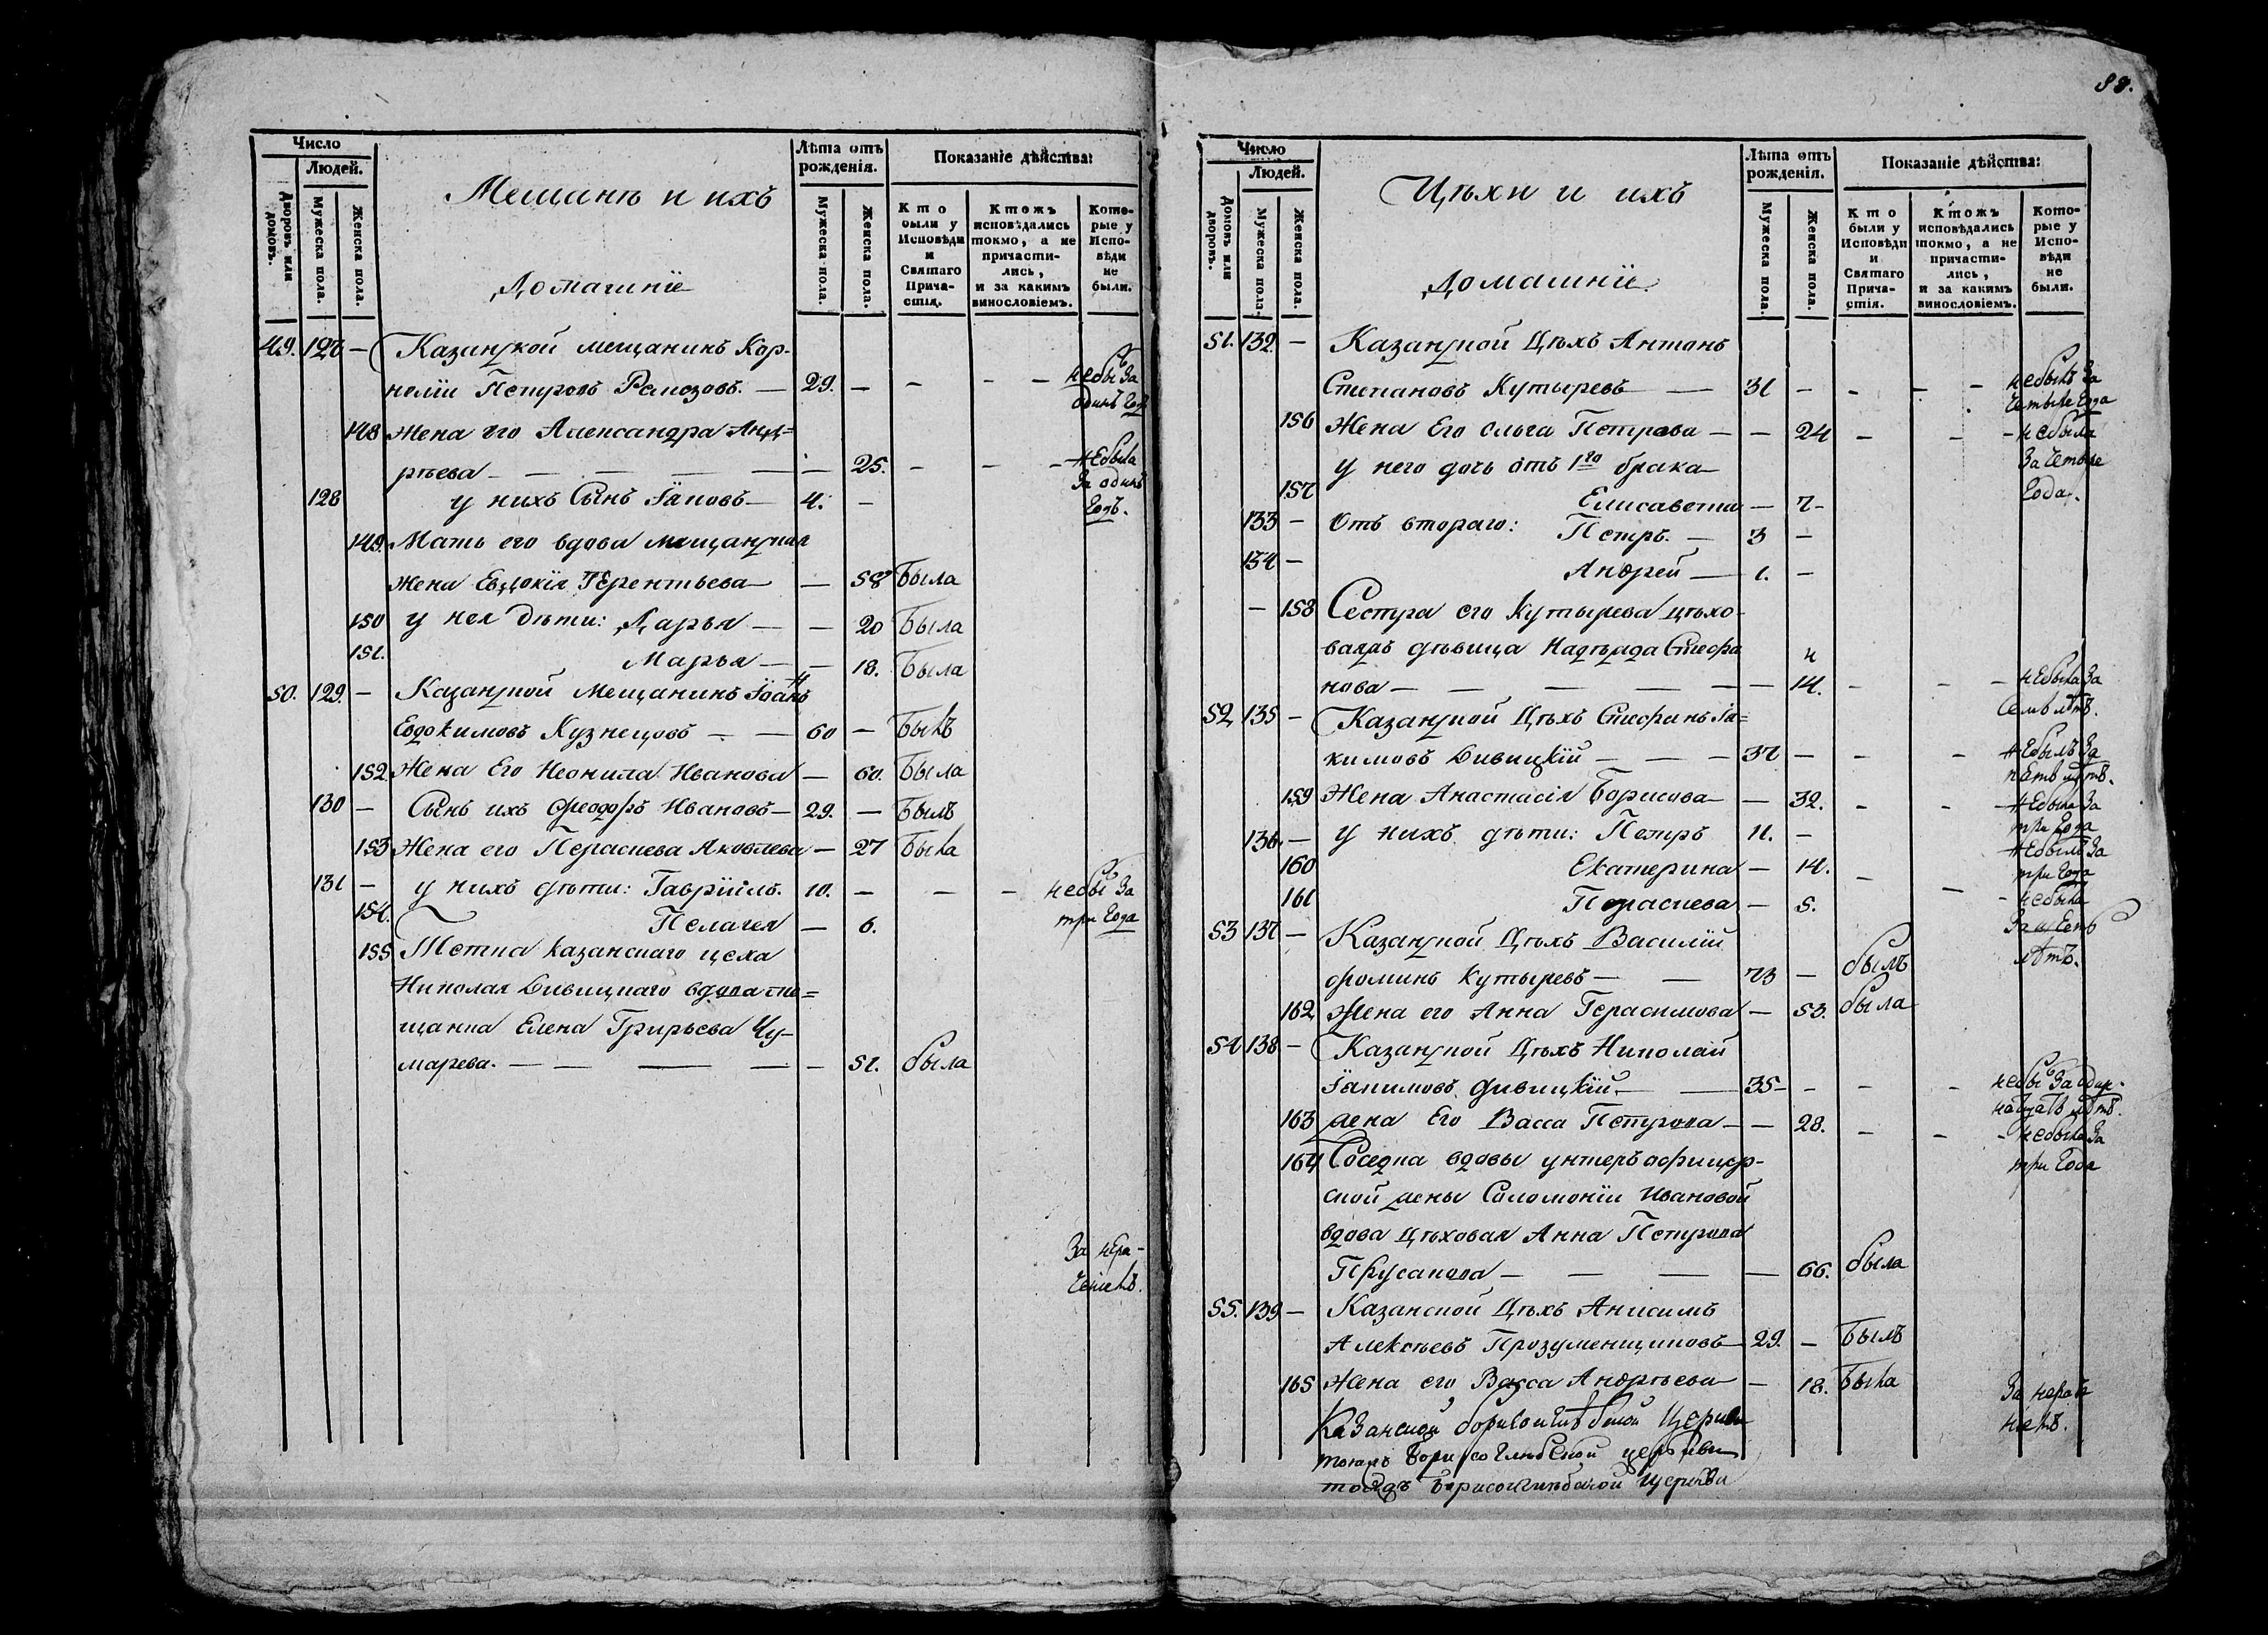 88.
Число
Людей.
Дворовъ или домовъ.
Мужеска пола.
Женска пола.
Мещанъ и ихъ
Домашнїе
Лѣта отъ рожденія.
Мужеска пола.
Женска пола.
Показаніе дѣйства:
Кто были у Исповѣди и Святаго Причастія.
Ктожъ исповѣдались токмо, а не причастились, и за какимъ винословіемъ.
Которые у Исповѣди не были.
49. 127 — Казанской мещанинъ Кор-
нилїи Петровъ Ремезовъ. — 29. — — — — небы За
одинъ Годъ
148 Жена его Александра Анд=
рѣева — — — — — 25. — — — Небыла
За одинъ
128 у нихъ Сынъ Їаковъ — 4. — Годъ.
149. Мать его вдова мещанская
жена Евдокїя Терентьева — — 58 Была
150 у нея дѣти: Дарья — — 20 Была
151. Марья — — 18. Была
50. 129. — Казанской Мещанинъ Їоанъ
Евдокимовъ Кузнецовъ — — 60 — Былъ
152 Жена Его Неонила Иванова — 60. Была
130 — Сынъ ихъ Феодоръ Ивановъ — 29. — Былъ
153 Жена его Параскева Яковлева — 27 Была
131 — у нихъ дѣти: Гаврїилъ. 10. — — — небы За
154. Пелагея — 6. три Года
155 Тетка казанскаго цеха
Николая Дивицкаго вдова ме=
щанка Елена Григрьева Чу-
марева. — — — — — 51. была
За нера-
ченїемъ.
Число
Людей.
Домовъ или дворовъ.
Мужеска пола.
Женска пола.
Цѣхи и ихъ
Домашнїе
Лѣта отъ рожденія.
Мужеска пола.
Женска пола.
Показаніе дѣйства:
Кто были у Исповѣди и Святаго Причастія.
Ктожъ исповѣдались токмо, а не причастились, и за какимъ винословіемъ.
Которые у Исповѣди не были.
51. 132. — Казанской Цѣхъ Антонъ
Степановъ Кутыревъ — 31 — — — — небылъ За
Четыре Года
156 Жена Его Ольга Петрова — — 24 — — — небыла
у него дочь отъ 1го брака За Четыре
157 Елисавета — 7 — Года.
133 — Отъ втораго: Петръ. — 3 —
134 — Андрей — 1. —
— 158 Сестра его Кутырева цѣхо-
вая дѣвица Надежда Стефа
нова — — — — — 14. — — — небыла За
Семь лѣтъ.
52 135 — Казанской Цѣхъ Стефанъ Їа=
кимовъ Дивицкїй — — — 37 — — — Небылъ За
пять лѣтъ.
159 Жена Анастасїя Борисова — — 32. — — — Небыла За
три Года
136. — у нихъ дѣти: Петръ 11. — Небылъ За
160 Екатерина — 14. — — три Года
161 Параскева — 5. — небыла
За шесть
лѣтъ.
53 137 — Казанской Цѣхъ Василїй
Фоминъ Кутыревъ — — 73 — былъ
162 Жена его Анна Герасимова — 53. была
54 138 — Казанской Цѣхъ Николай
Їакимовъ Дивицкїй — — 35 — — — — небы За один-
натцать лѣтъ.
163 жена Его Васса Петрова — — 28. — — — небыла За
три Года
164 Соседка вдовы унтеръ офицер-
ской жены Соломонїи Ивановой
вдова Цѣховая Анна Петрова
Прусакова — — — — 66. была
55. 139 — Казанской Цѣхъ Анисимъ
Алексѣевъ Прозуменщиковъ — 29. — Былъ
165 Жена его Васса Андрѣева — — 18. Была
За нераче
нїемъ.
Казанской Борисоглѣбской Церкви
тоежъ Борисоглѣбской церкви
тояжъ Борисоглѣбской Церкви